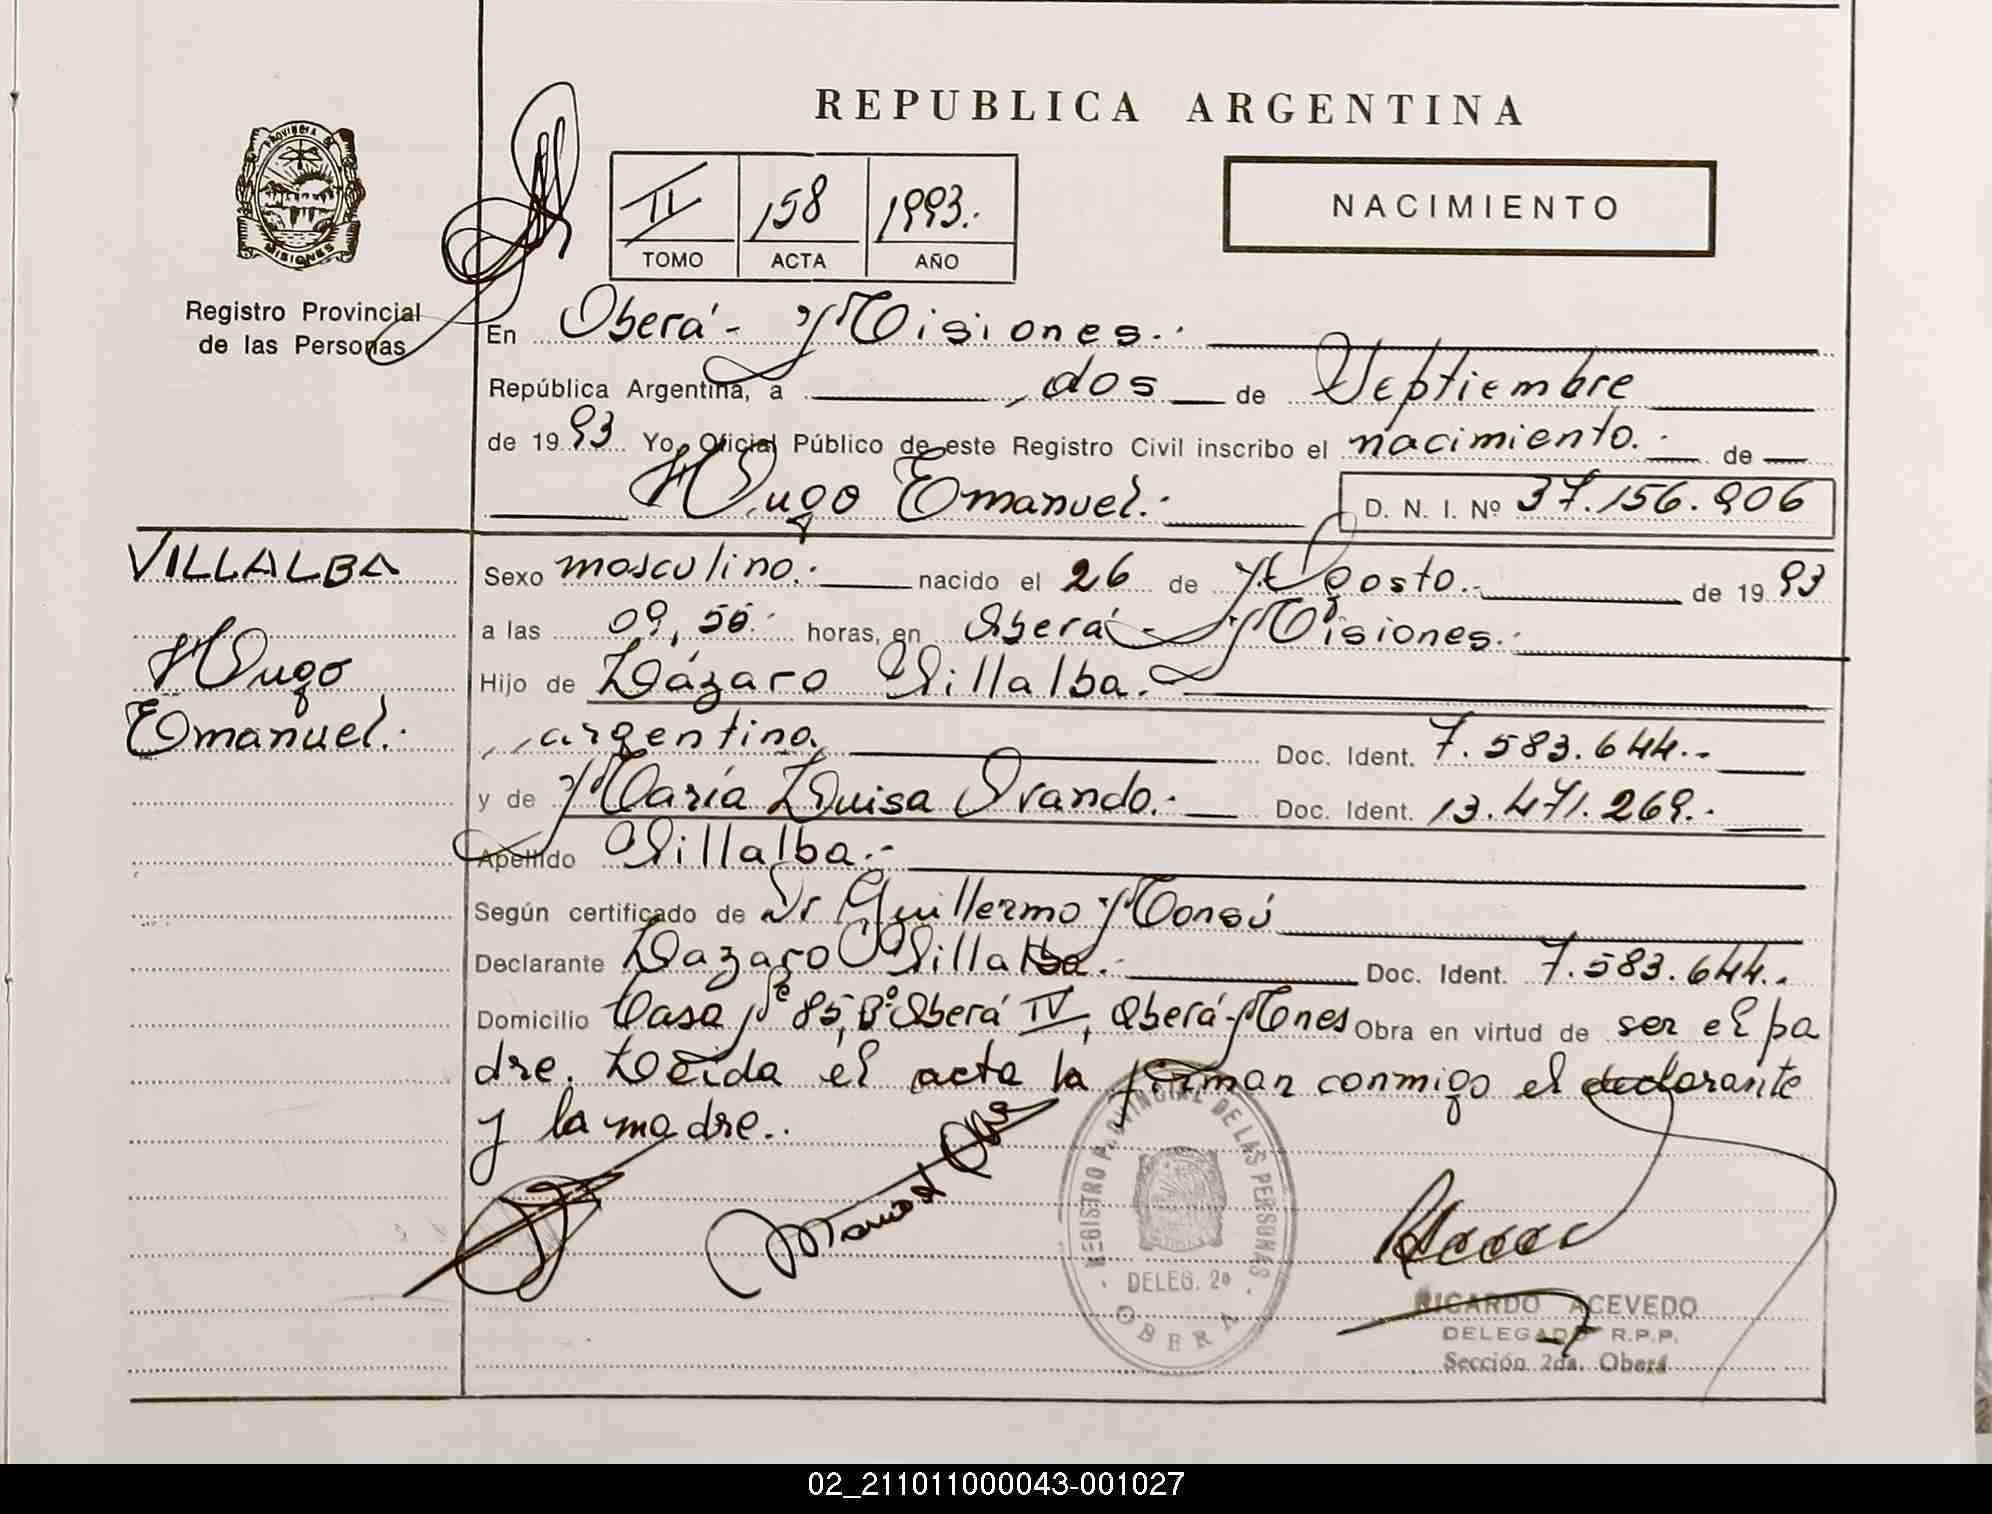 REPUBLICA ARGENTINA
PROVINCIA DE
MISIONES
Registro Provincial
de las Personas
II 158 1993.
TOMO ACTA AÑO
NACIMIENTO
En Oberá - Misiones.
República Argentina, a dos de Septiembre
de 1993 Yo Oficial Público de este Registro Civil inscribo el nacimiento. de
Hugo Emanuel. D. N. I. Nº 37.156.906
VILLALBA
Hugo
Emanuel.
Sexo masculino. nacido el 26 de Agosto. de 1993
a las 09,50 horas, en Oberá - Misiones.
Hijo de Lázaro Villalba.
argentino, Doc. Ident. 7.583.644.-
y de María Luisa Ovando.- Doc. Ident. 13.471.269.-
Apellido Villalba.-
Según certificado de Dr Guillermo Monsú
Declarante Lazaro Villalba.- Doc. Ident. 7.583.644.-
Domicilio Casa Nº 85, Bº Oberá IV, Oberá - Mnes Obra en virtud de ser el pa
dre. Leida el acta la firman conmigo el declarante
y la madre..
REGISTRO PROVINCIAL DE LAS PERSONAS
DELEG. 2ª
OBERA
RICARDO ACEVEDO
DELEGADO R.P.P.
Sección 2da. Oberá
02_211011000043-001027